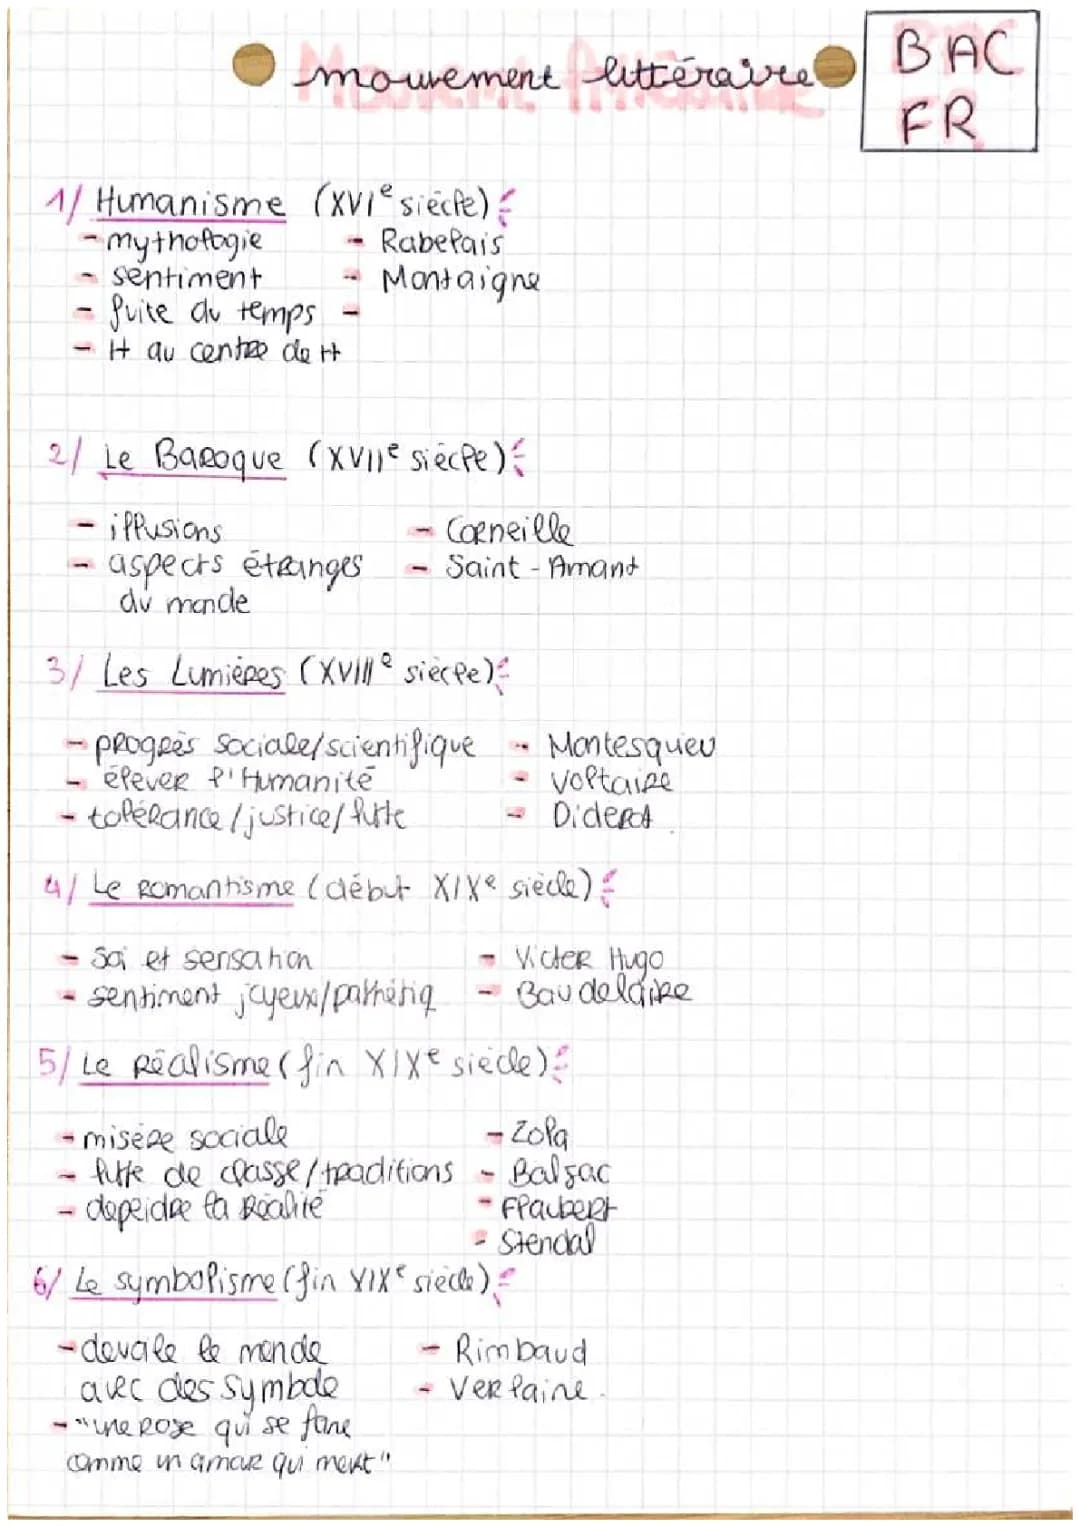 mouvement littéraire
BAC
FR
1/ Humanisme (XVIe siècle)
- mythologie - Rabelais
- sentiment - Montaigne
- fuite du temps -
- H au centre de H
2/ Le Baroque (XVIIe siècle)
- illusions - Corneille
- aspects étranges - Saint-Amant
du monde
3/ Les Lumières (XVIIIe siècle)
- progrès sociale/scientifique - Montesquieu
- élever l'Humanité - Voltaire
- tolérance/justice/lutte - Diderot
4/ Le Romantisme (début XIXe siècle)
- Soi et sensation - Victor Hugo
- sentiment joyeux/pathétiq - Baudelaire
5/ Le Réalisme (fin XIXe siècle)
- misère sociale - Zola
- lutte de classe/traditions - Balzac
- depeidre la Réalité - Flaubert
- Stendal
6/ Le symbolisme (fin XIXe siècle)
- devale le monde - Rimbaud
avec des symbole - Verlaine.
- "une rose qui se fane
comme un amour qui meurt"